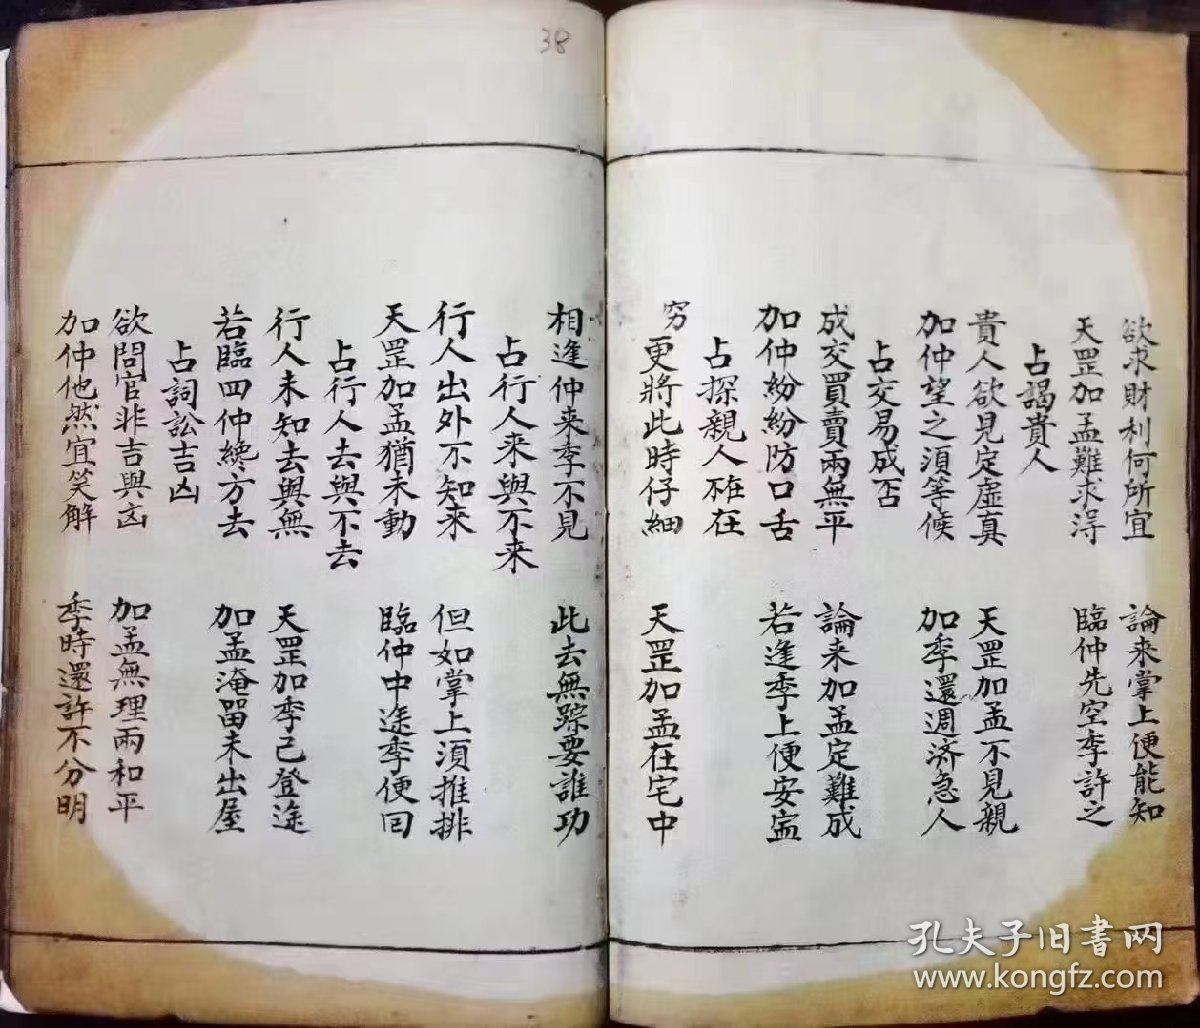 38
欲求財利何所宜　論来掌上便能知
天罡加孟難求淂　臨仲先空季許之
占謁貴人
貴人欲見定虛真　天罡加孟不見親
加仲望之須等候　加季還週济急人
占交易成否
成交買賣兩無平　論来加孟定難成
加仲紛紛防口舌　若逢季上便安寍
占探親人在
窃更將此時仔細　天罡加孟在宅中
相逢仲来季不見　此去無踪要誰功
占行人来與不来
行人出外不知來　但如掌上須推排
天罡加孟猶未動　臨仲中途季便回
占行人去與不去
行人未知去與無　天罡加季己登途
若臨四仲纔方去　加孟淹畄未出屋
占詞訟吉凶
欲問官非吉與凶　加孟無理兩和平
加仲他然宜笑解　季時還許不分明
孔夫子旧書网
www.kongfz.com